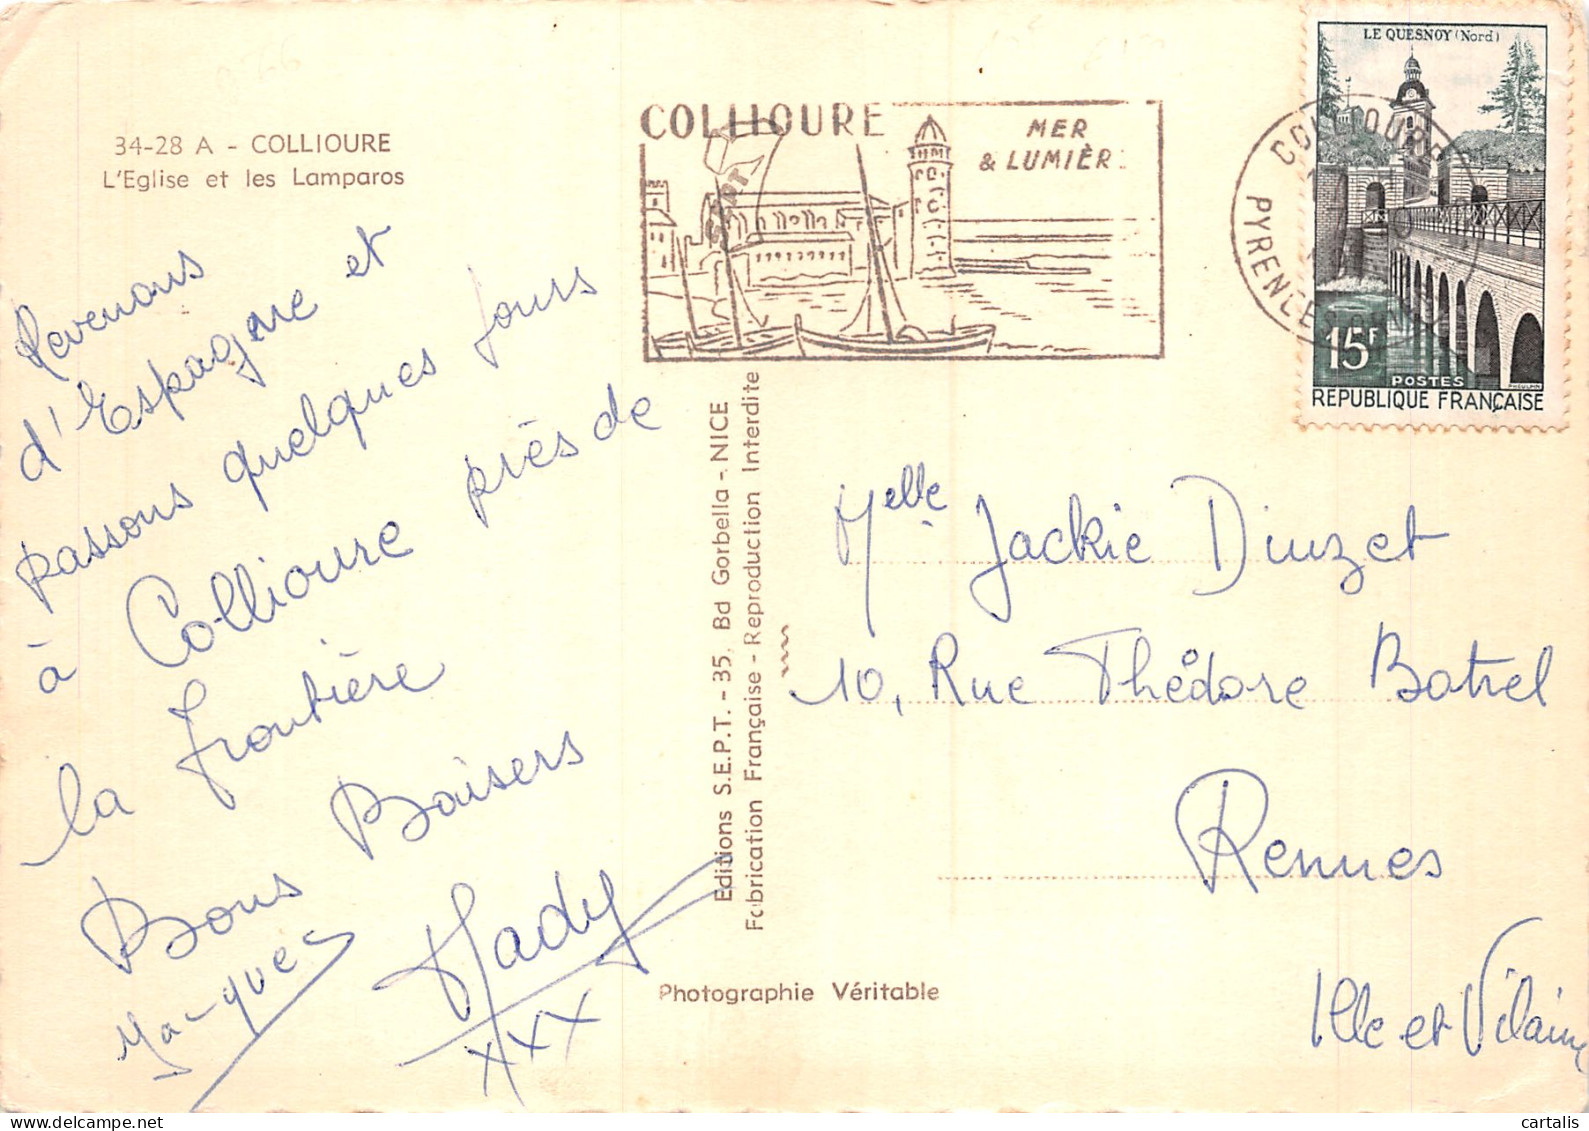 34-28 A - COLLIOURE
L'Eglise et les Lamparos
Revenons
d'Espagne et
passons quelques jours
à Collioure près de
la frontière
Bons Baisers
Mady
XXX
COLLIOURE
MER
& LUMIÈR
SEPT
COLLIOURE
LE QUESNOY (Nord)
15F
POSTES
REPUBLIQUE FRANÇAISE
Editions S.E.P.T. - 35, Bd Gorbella - NICE
Fabrication Française - Reproduction Interdite
Photographie Véritable
Melle Jackie Diuzet
10, Rue Théodore Botrel
Rennes
Ille et Vilaine
cartalis